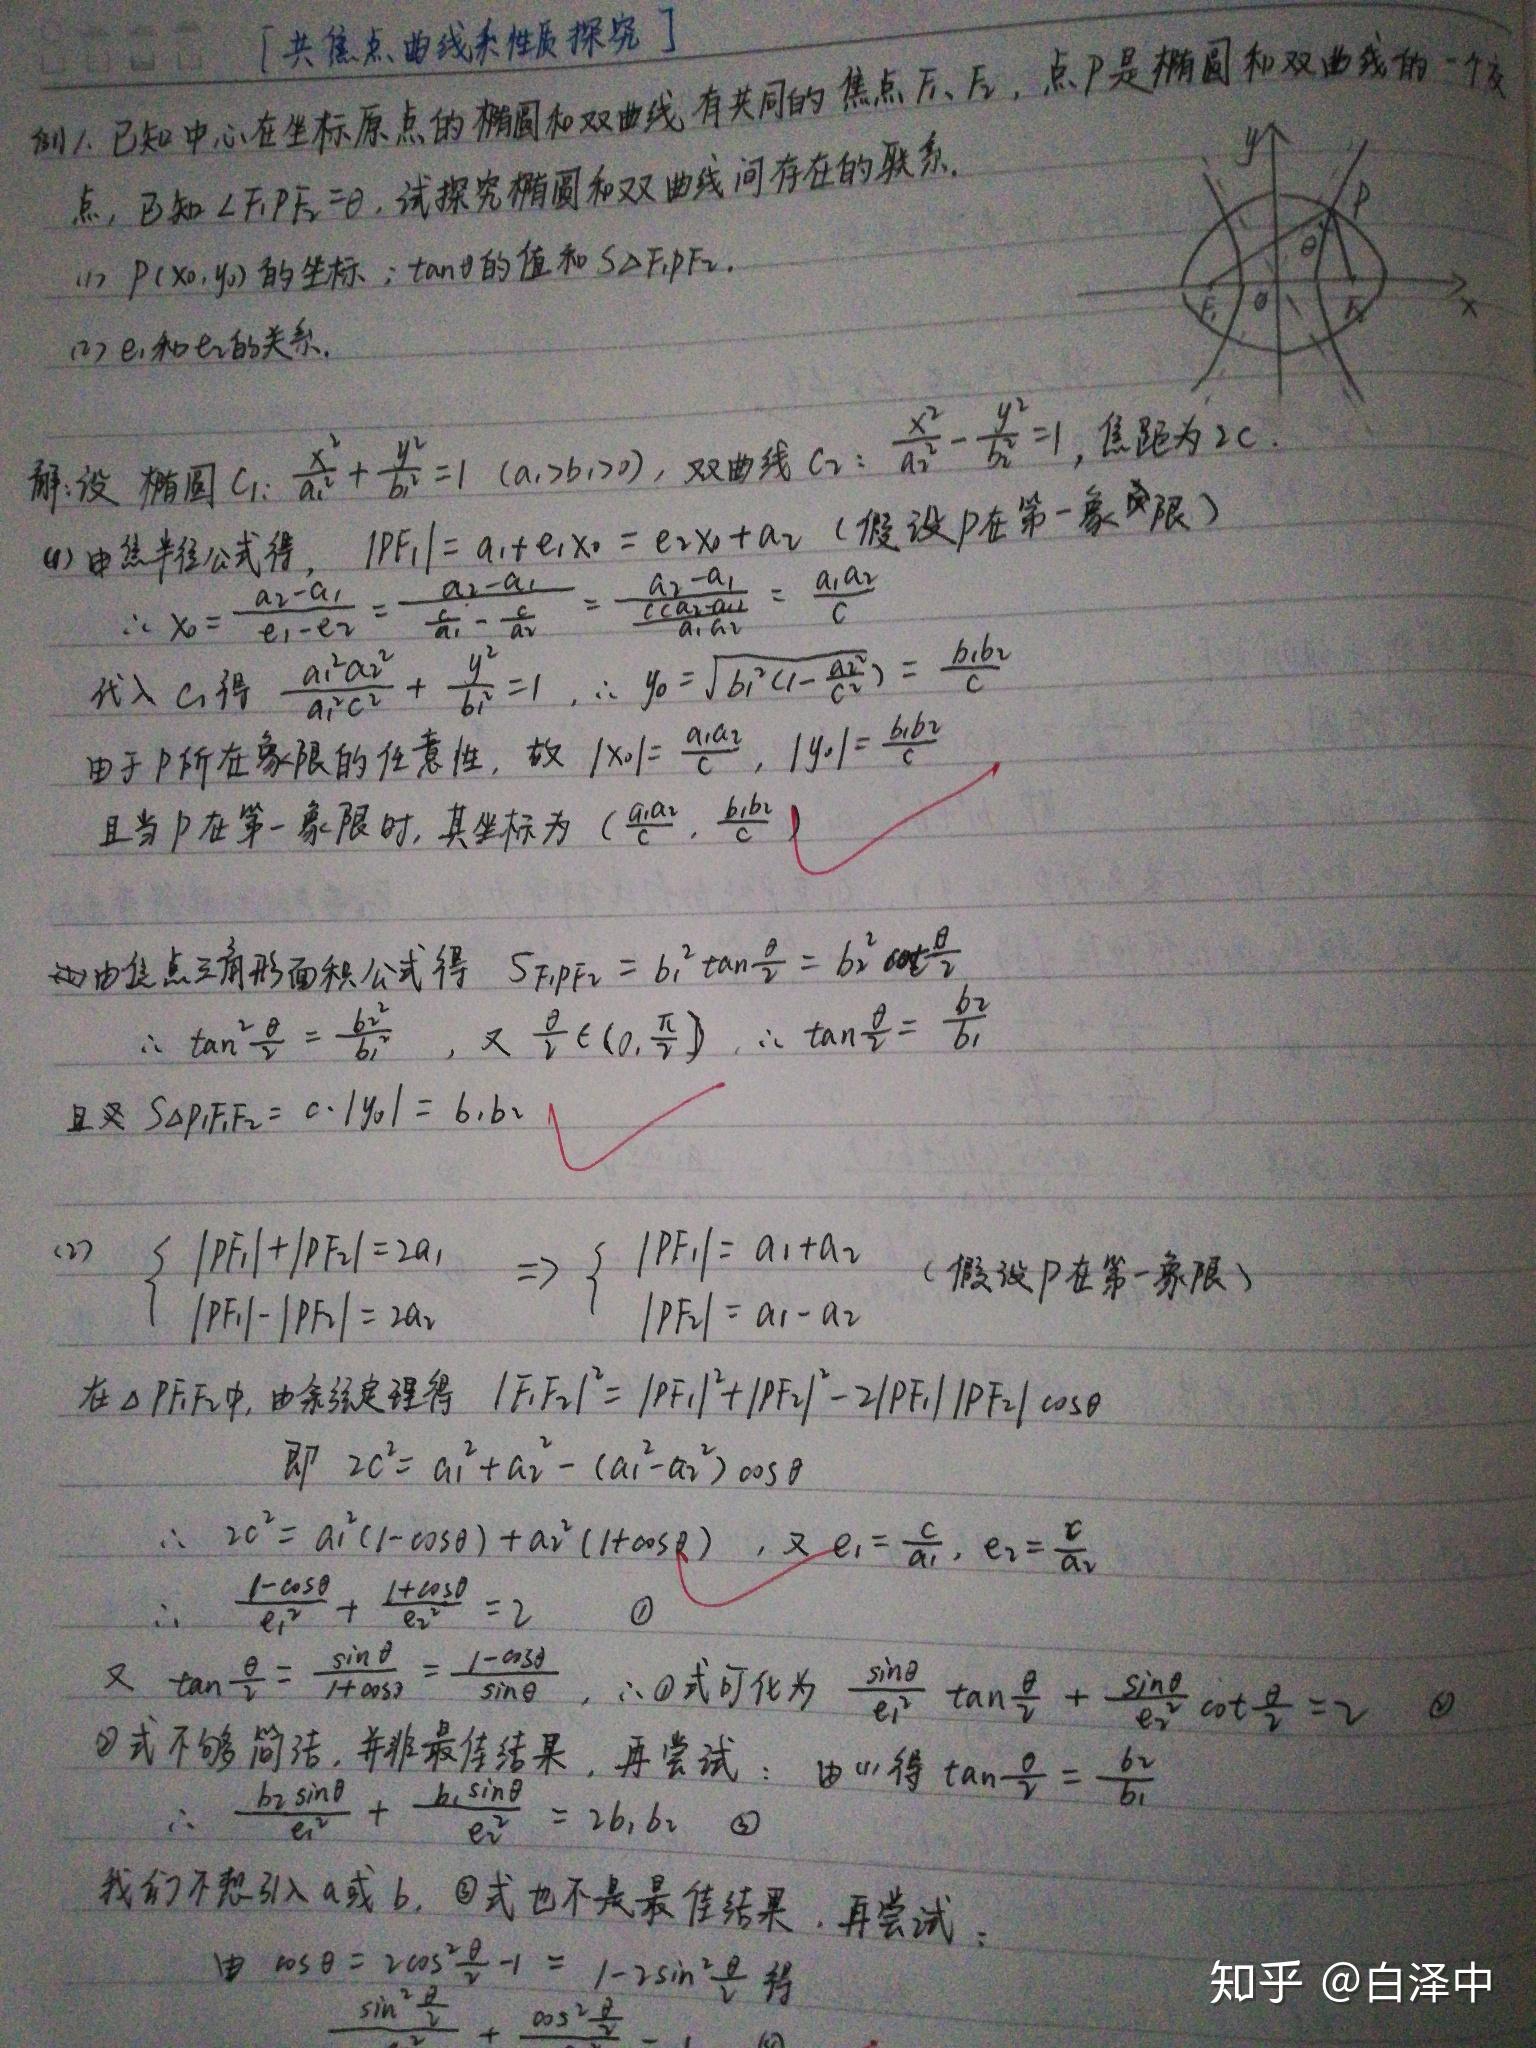 [共焦点曲线系性质探究]
例1. 已知中心在坐标原点的椭圆和双曲线有共同的焦点F₁、F₂，点P是椭圆和双曲线的一个交
点，已知∠F₁PF₂=θ，试探究椭圆和双曲线间存在的联系.
(1) P(x₀,y₀)的坐标；tanθ的值和S△F₁PF₂.
(2) e₁和e₂的关系.
y
P
θ
F₁ 0 F₂ x
解:设 椭圆C₁: x²/a₁² + y²/b₁² = 1 (a₁>b₁>0), 双曲线C₂: x²/a₂² - y²/b₂² = 1, 焦距为2c.
(1) 由焦半径公式得, |PF₁| = a₁+e₁x₀ = e₂x₀+a₂ (假设P在第一象限)
∴ x₀ = (a₂-a₁)/(e₁-e₂) = (a₂-a₁)/(c/a₁ - c/a₂) = (a₂-a₁)/(c(a₂-a₁)/a₁a₂) = a₁a₂/c
代入C₁得 a₁²a₂²/a₁²c² + y²/b₁² = 1, ∴ y₀ = √(b₁²(1-a₂²/c²)) = b₁b₂/c
由于P所在象限的任意性, 故 |x₀| = a₁a₂/c, |y₀| = b₁b₂/c
且当P在第一象限时, 其坐标为 (a₁a₂/c, b₁b₂/c)
由焦点三角形面积公式得 S F₁PF₂ = b₁² tan θ/2 = b₂² cot θ/2
∴ tan² θ/2 = b₂²/b₁², 又 θ/2 ∈ (0, π/2), ∴ tan θ/2 = b₂/b₁
且 S△PF₁F₂ = c·|y₀| = b₁b₂
(2) { |PF₁|+|PF₂| = 2a₁ ⇒ { |PF₁| = a₁+a₂ (假设P在第一象限)
|PF₁|-|PF₂| = 2a₂ |PF₂| = a₁-a₂
在△PF₁F₂中, 由余弦定理得 |F₁F₂|² = |PF₁|²+|PF₂|²-2|PF₁||PF₂|cosθ
即 2c² = a₁²+a₂²-(a₁²-a₂²)cosθ
∴ 2c² = a₁²(1-cosθ)+a₂²(1+cosθ), 又 e₁ = c/a₁, e₂ = c/a₂
∴ (1-cosθ)/e₁² + (1+cosθ)/e₂² = 2 ①
又 tan θ/2 = sinθ/(1+cosθ) = (1-cosθ)/sinθ, ∴①式可化为 sinθ/e₁² tan θ/2 + sinθ/e₂² cot θ/2 = 2 ②
②式不够简洁, 并非最佳结果, 再尝试: 由(1)得 tan θ/2 = b₂/b₁
∴ b₂sinθ/e₁² + b₁sinθ/e₂² = 2b₁b₂ ③
我们不想引入a或b, ③式也不是最佳结果, 再尝试:
由 cosθ = 2cos² θ/2 - 1 = 1-2sin² θ/2 得
sin² θ/2 + cos² θ/2
知乎 @白泽中